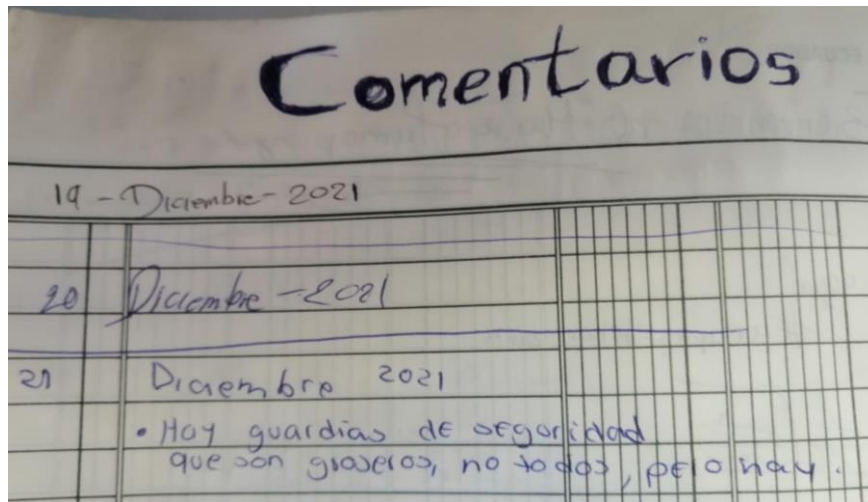 Comentarios
19 - Diciembre - 2021
20 Diciembre - 2021
21 Diciembre 2021
• Hay guardias de seguridad
que son groseros, no todos, pero hay.